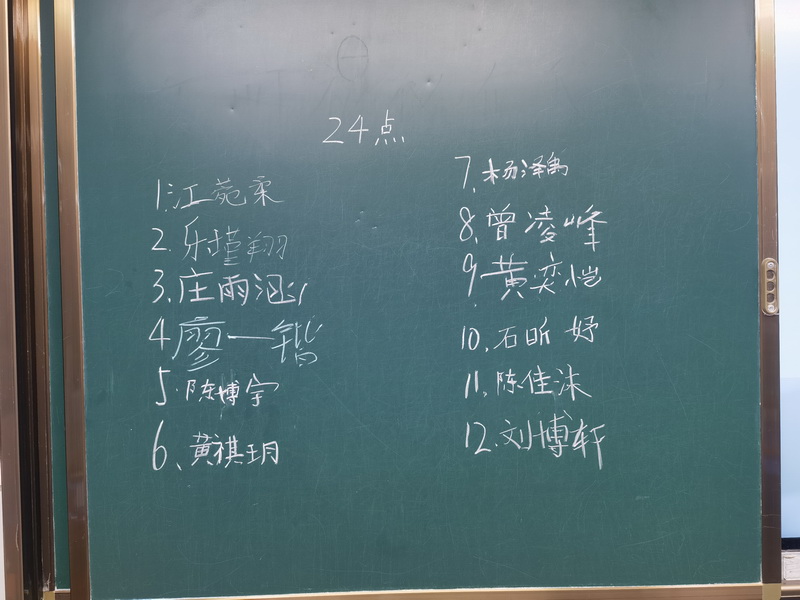 24点
1.江菀柔
2.乐瑾翔
3.庄雨涵
4廖一锴
5.陈博宇
6、黄祺玥
7.杨泽禹
8.曾凌峰
9.黄奕恺
10.石昕妤
11.陈佳沫
12.刘博轩